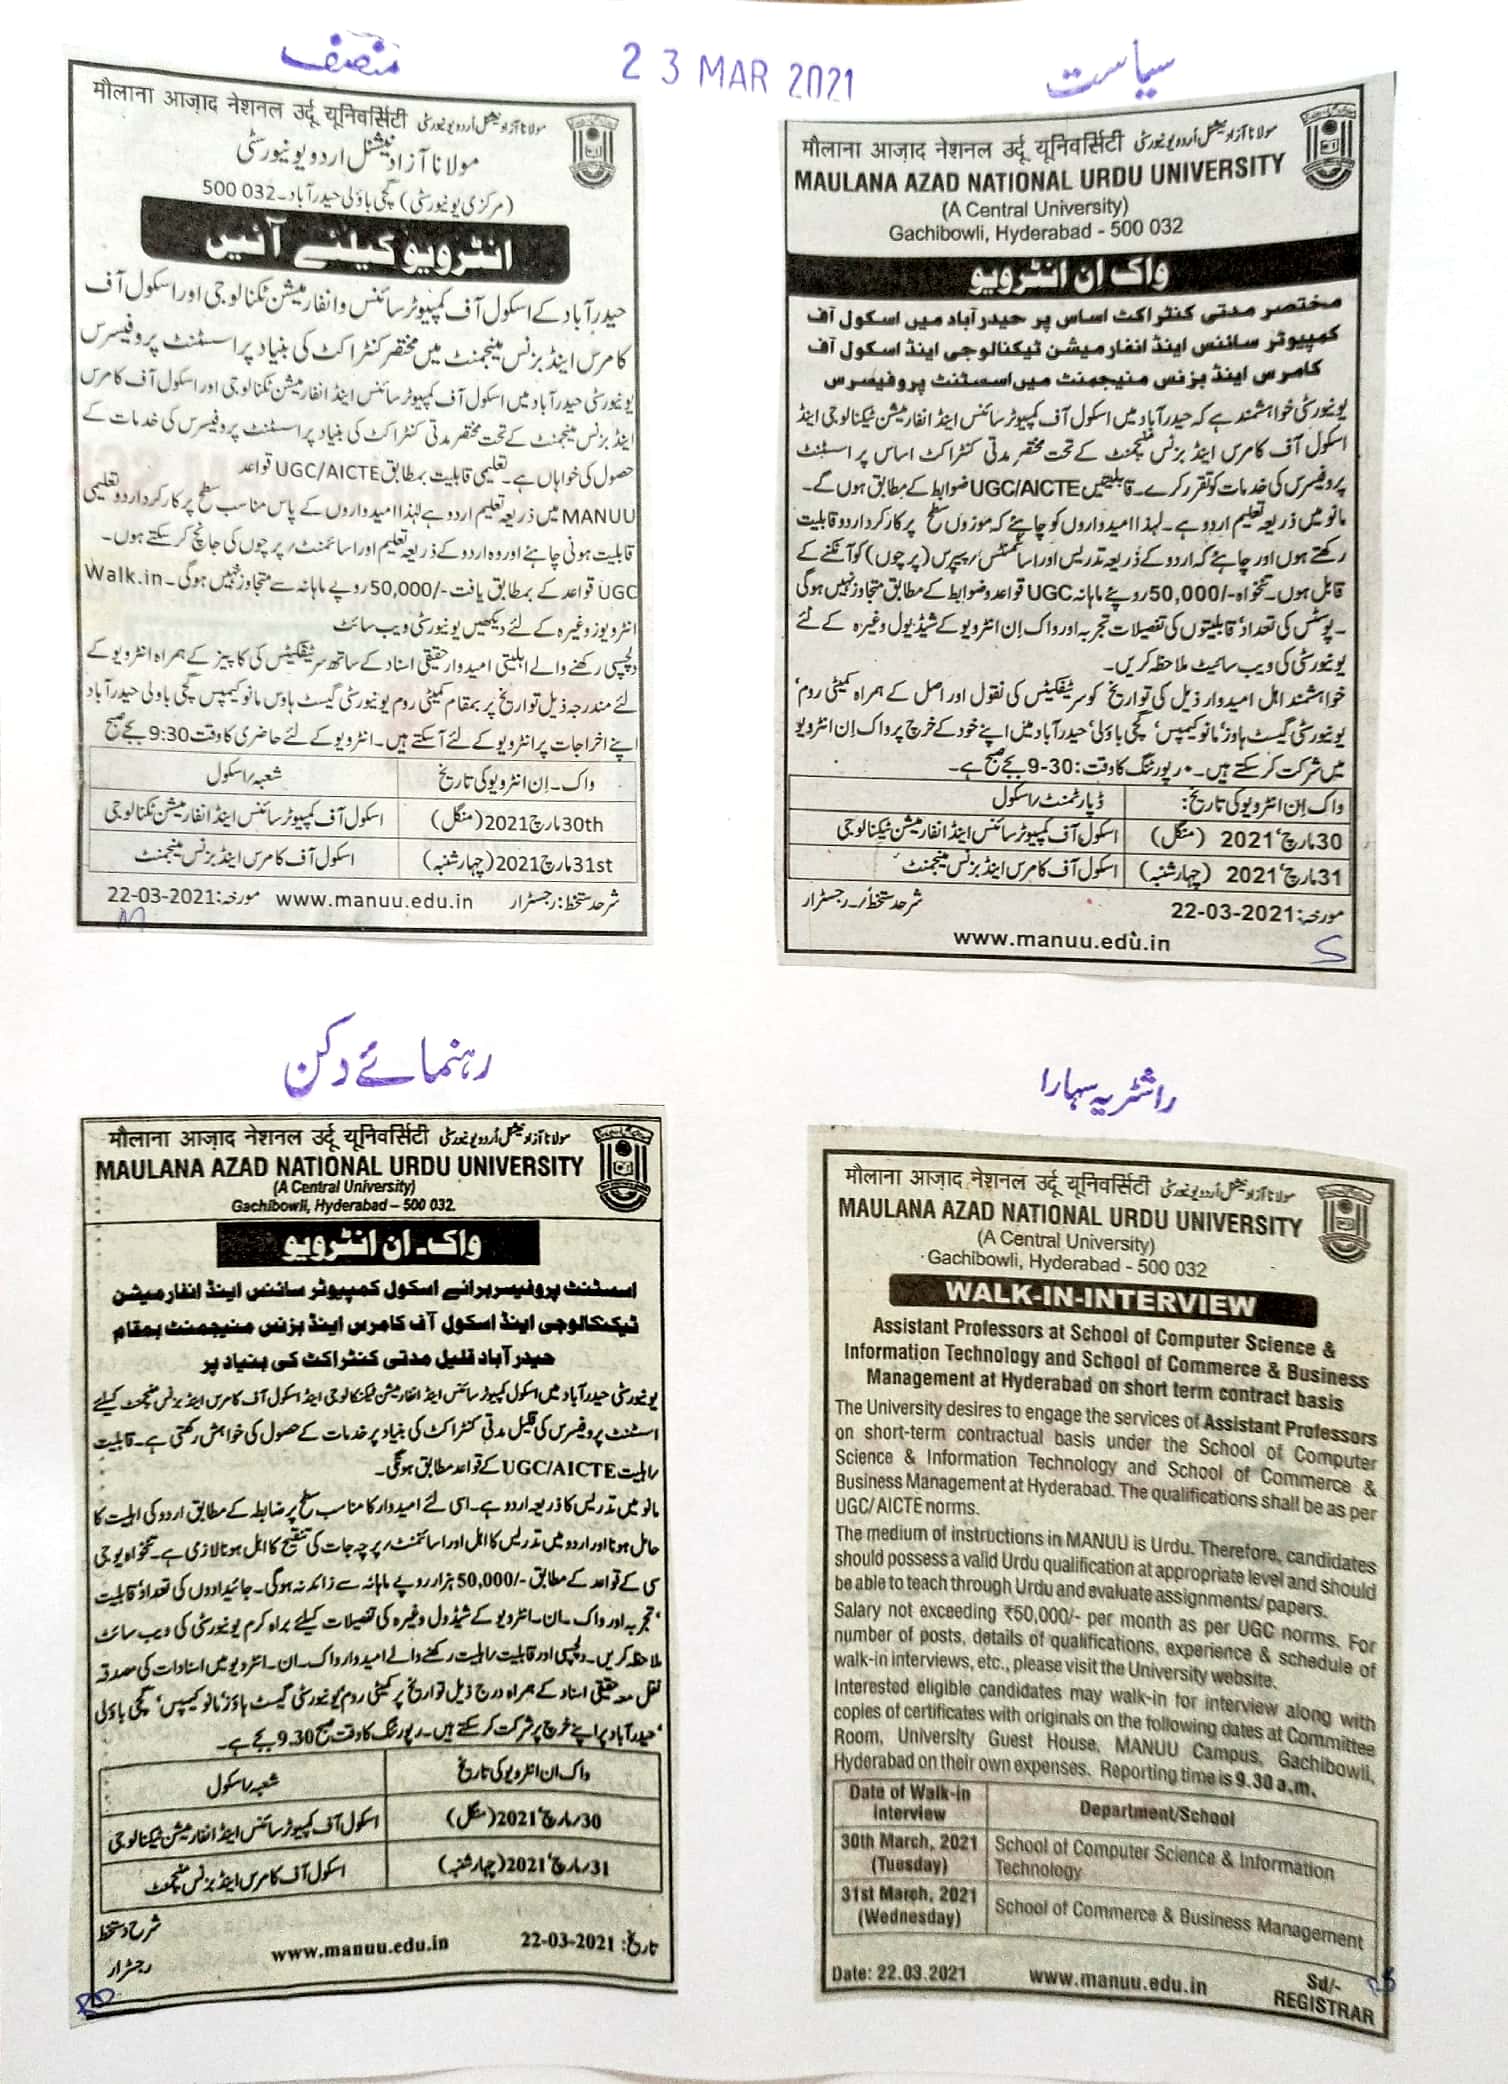 منصف
23 MAR 2021
سیاست
मौलाना आज़ाद नेशनल उर्दू यूनिवर्सिटी مولانا آزاد نیشنل اُردو یونیورسٹی
مولانا آزاد نیشنل اردو یونیورسٹی
(مرکزی یونیورسٹی) گچی باؤلی حیدرآباد۔ 500 032
انٹرویو کیلئے آئیں
حیدرآباد کے اسکول آف کمپیوٹر سائنس و انفارمیشن ٹکنالوجی اور اسکول آف
کامرس اینڈ بزنس مینجمنٹ میں مختصر کنٹراکٹ کی بنیاد پر اسسٹنٹ پروفیسرس
یونیورسٹی حیدرآباد میں اسکول آف کمپیوٹر سائنس اینڈ انفارمیشن ٹکنالوجی اور اسکول آف کامرس
اینڈ بزنس مینجمنٹ کے تحت مختصر مدتی کنٹراکٹ کی بنیاد پر اسسٹنٹ پروفیسرس کی خدمات کے
حصول کی خواہاں ہے۔ تعلیمی قابلیت بمطابق UGC/AICTE قواعد
MANUU میں ذریعہ تعلیم اردو ہے لہذا امیدواروں کے پاس مناسب سطح پر کارکرد اردو تعلیمی
قابلیت ہونی چاہئے اور وہ اردو کے ذریعہ تعلیم اور اسائنمنٹ/ پرچوں کی جانچ کر سکتے ہوں۔
UGC قواعد کے بمطابق یافت -/50,000 روپے ماہانہ سے متجاوز نہیں ہوگی۔ Walk.in
انٹرویوز وغیرہ کے لئے دیکھیں یونیورسٹی ویب سائٹ
دلچسپی رکھنے والے اہلیتی امیدوار حقیقی اسناد کے ساتھ سرٹیفکیٹس کی کاپیز کے ہمراہ انٹرویو کے
لئے مندرجہ ذیل تواریخ پر بمقام کمیٹی روم یونیورسٹی گیسٹ ہاوس مانو کیمپس گچی باولی حیدرآباد
اپنے اخراجات پر انٹرویو کے لئے آسکتے ہیں۔ انٹرویو کے لئے حاضری کا وقت 9:30 بجے صبح
واک۔ اِن انٹرویو کی تاریخ شعبہ/ اسکول
30th مارچ 2021 (منگل) اسکول آف کمپیوٹر سائنس اینڈ انفارمیشن ٹکنالوجی
31st مارچ 2021 (چہارشنبہ) اسکول آف کامرس اینڈ بزنس مینجمنٹ
شرحد ستخط: رجسٹرار www.manuu.edu.in مورخہ: 22-03-2021
M
मौलाना आज़ाद नेशनल उर्दू यूनिवर्सिटी مولانا آزاد نیشنل اُردو یونیورسٹی
MAULANA AZAD NATIONAL URDU UNIVERSITY
(A Central University)
Gachibowli, Hyderabad - 500 032
واک اِن انٹرویو
مختصر مدتی کنٹراکٹ اساس پر حیدرآباد میں اسکول آف
کمپیوٹر سائنس اینڈ انفارمیشن ٹیکنالوجی اینڈ اسکول آف
کامرس اینڈ بزنس منیجمنٹ میں اسسٹنٹ پروفیسرس
یونیورسٹی خواہشمند ہے کہ حیدرآباد میں اسکول آف کمپیوٹر سائنس اینڈ انفارمیشن ٹیکنالوجی اینڈ
اسکول آف کامرس اینڈ بزنس منیجمنٹ کے تحت مختصر مدتی کنٹراکٹ اساس پر اسسٹنٹ
پروفیسرس کی خدمات کو تقرر کرے۔ قابلیتیں UGC/AICTE ضوابط کے مطابق ہوں گے۔
مانو میں ذریعہ تعلیم اردو ہے۔ لہذا امیدواروں کو چاہئے کہ موزوں سطح پر کارکرد اردو قابلیت
رکھتے ہوں اور چاہئے کہ اردو کے ذریعہ تدریس اور اسائنمنٹس/ پیپرس (پرچوں) کو آنکنے کے
قابل ہوں۔ تنخواہ -/50,000 روپئے ماہانہ UGC قواعد و ضوابط کے مطابق متجاوز نہیں ہوگی
۔ پوسٹس کی تعداد' قابلیتوں کی تفصیلات تجربہ اور واک اِن انٹرویو کے شیڈیول وغیرہ کے لئے
یونیورسٹی کی ویب سائیٹ ملاحظہ کریں۔
خواہشمند اہل امیدوار ذیل کی تواریخ کو سرٹیفکیٹس کی نقول اور اصل کے ہمراہ کمیٹی روم'
یونیورسٹی گیسٹ ہاوز' مانو کیمپس' گچی باؤلی' حیدرآباد میں اپنے خود کے خرچ پر واک اِن انٹرویو
میں شرکت کر سکتے ہیں۔ رپورٹنگ کا وقت: 9-30 بجے صبح ہے۔
واک اِن انٹرویو کی تاریخ: ڈپارٹمنٹ/ اسکول
30 مارچ' 2021 (منگل) اسکول آف کمپیوٹر سائنس اینڈ انفارمیشن ٹیکنالوجی
31 مارچ' 2021 (چہارشنبہ) اسکول آف کامرس اینڈ بزنس منیجمنٹ
مورخہ: 22-03-2021 شرحد ستخط/۔ رجسٹرار
www.manuu.edu.in
S
رہنمائے دکن
راشٹریہ سہارا
मौलाना आज़ाद नेशनल उर्दू यूनिवर्सिटी مولانا آزاد نیشنل اُردو یونیورسٹی
MAULANA AZAD NATIONAL URDU UNIVERSITY
(A Central University)
Gachibowli, Hyderabad – 500 032.
واک۔ ان انٹرویو
اسسٹنٹ پروفیسر برائے اسکول کمپیوٹر سائنس اینڈ انفارمیشن
ٹیکنکالوجی اینڈ اسکول آف کامرس اینڈ بزنس منیجمنٹ بمقام
حیدرآباد قلیل مدتی کنٹراکٹ کی بنیاد پر
یونیورسٹی حیدرآباد میں اسکول کمپیوٹر سائنس اینڈ انفارمیشن ٹیکنکالوجی اینڈ اسکول آف کامرس اینڈ بزنس منیجمنٹ کیلئے
اسسٹنٹ پروفیسرس کی قلیل مدتی کنٹراکٹ کی بنیاد پر خدمات کے حصول کی خواہش رکھتی ہے۔ قابلیت
/اہلیت UGC/AICTE کے قواعد مطابق ہونگی۔
مانو میں تدریس کا ذریعہ اردو ہے۔ اسی لئے امیدوار کا مناسب سطح پر ضابطہ کے مطابق اردو کی اہلیت کا
حامل ہونا اور اردو میں تدریس کا اہل اور اسائنمنٹ/ پرچہ جات کی تنقیح کا اہل ہونا لازمی ہے۔ تنخواہ یو جی
سی کے قواعد کے مطابق -/50,000 ہزار روپے ماہانہ سے زائد نہ ہوگی۔ جائیدادوں کی تعداد' قابلیت
'تجربہ اور واک۔ ان۔ انٹرویو کے شیڈول وغیرہ کی تفصیلات کیلئے براہ کرم یونیورسٹی کی ویب سائٹ
ملاحظہ کریں۔ دلچسپی اور قابلیت/ اہلیت رکھنے والے امیدوار واک۔ ان۔ انٹرویو میں اسنادات کی مصدقہ
نقل معہ حقیقی اسناد کے ہمراہ درج ذیل تواریخ پر کمیٹی روم' یونیورسٹی گیسٹ ہاؤز' مانو کیمپس' گچی باؤلی
'حیدرآباد پر اپنے خرچ پر شرکت کر سکتے ہیں۔ رپورٹنگ کا وقت صبح 9.30 بجے ہے۔
واک ان انٹرویو کی تاریخ شعبہ/ اسکول
30/ مارچ' 2021 (منگل) اسکول آف کمپیوٹر سائنس اینڈ انفارمیشن ٹیکنالوجی
31/ مارچ' 2021 (چہارشنبہ) اسکول آف کامرس اینڈ بزنس منیجمنٹ
تاریخ: 22-03-2021 www.manuu.edu.in شرح دستخط
رجسٹرار
RD
मौलाना आज़ाद नेशनल उर्दू यूनिवर्सिटी مولانا آزاد نیشنل اُردو یونیورسٹی
MAULANA AZAD NATIONAL URDU UNIVERSITY
(A Central University)
Gachibowli, Hyderabad - 500 032
WALK-IN-INTERVIEW
Assistant Professors at School of Computer Science &
Information Technology and School of Commerce & Business
Management at Hyderabad on short term contract basis
The University desires to engage the services of Assistant Professors
on short-term contractual basis under the School of Computer
Science & Information Technology and School of Commerce &
Business Management at Hyderabad. The qualifications shall be as per
UGC/AICTE norms.
The medium of instructions in MANUU is Urdu. Therefore, candidates
should possess a valid Urdu qualification at appropriate level and should
be able to teach through Urdu and evaluate assignments/ papers.
Salary not exceeding ₹50,000/- per month as per UGC norms. For
number of posts, details of qualifications, experience & schedule of
walk-in interviews, etc., please visit the University website.
Interested eligible candidates may walk-in for interview along with
copies of certificates with originals on the following dates at Committee
Room, University Guest House, MANUU Campus, Gachibowli,
Hyderabad on their own expenses. Reporting time is 9.30 a.m.
Date of Walk-in Interview Department/School
30th March, 2021 (Tuesday) School of Computer Science & Information Technology
31st March, 2021 (Wednesday) School of Commerce & Business Management
Date: 22.03.2021 www.manuu.edu.in Sd/-
REGISTRAR